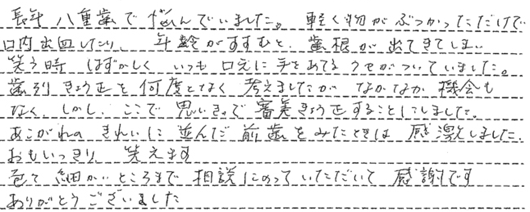 長年 八重歯で悩んでいました。軽く物がぶつかっただけで
口内出血したり、年齢がすすむと、歯根が出てきてしまい
笑う時 はずかしく いつも口元に手をあてるクセがついていました。
歯列きょう正を何度となく考えましたが なかなか機会も
なく しかし、ここで思いきって審美きょう正することにしました。
あこがれの きれいに並んだ前歯をみたときは 感激しました。
おもいっきり 笑えます
色々細かいところまで相談にのっていただいて 感謝です
ありがとうございました